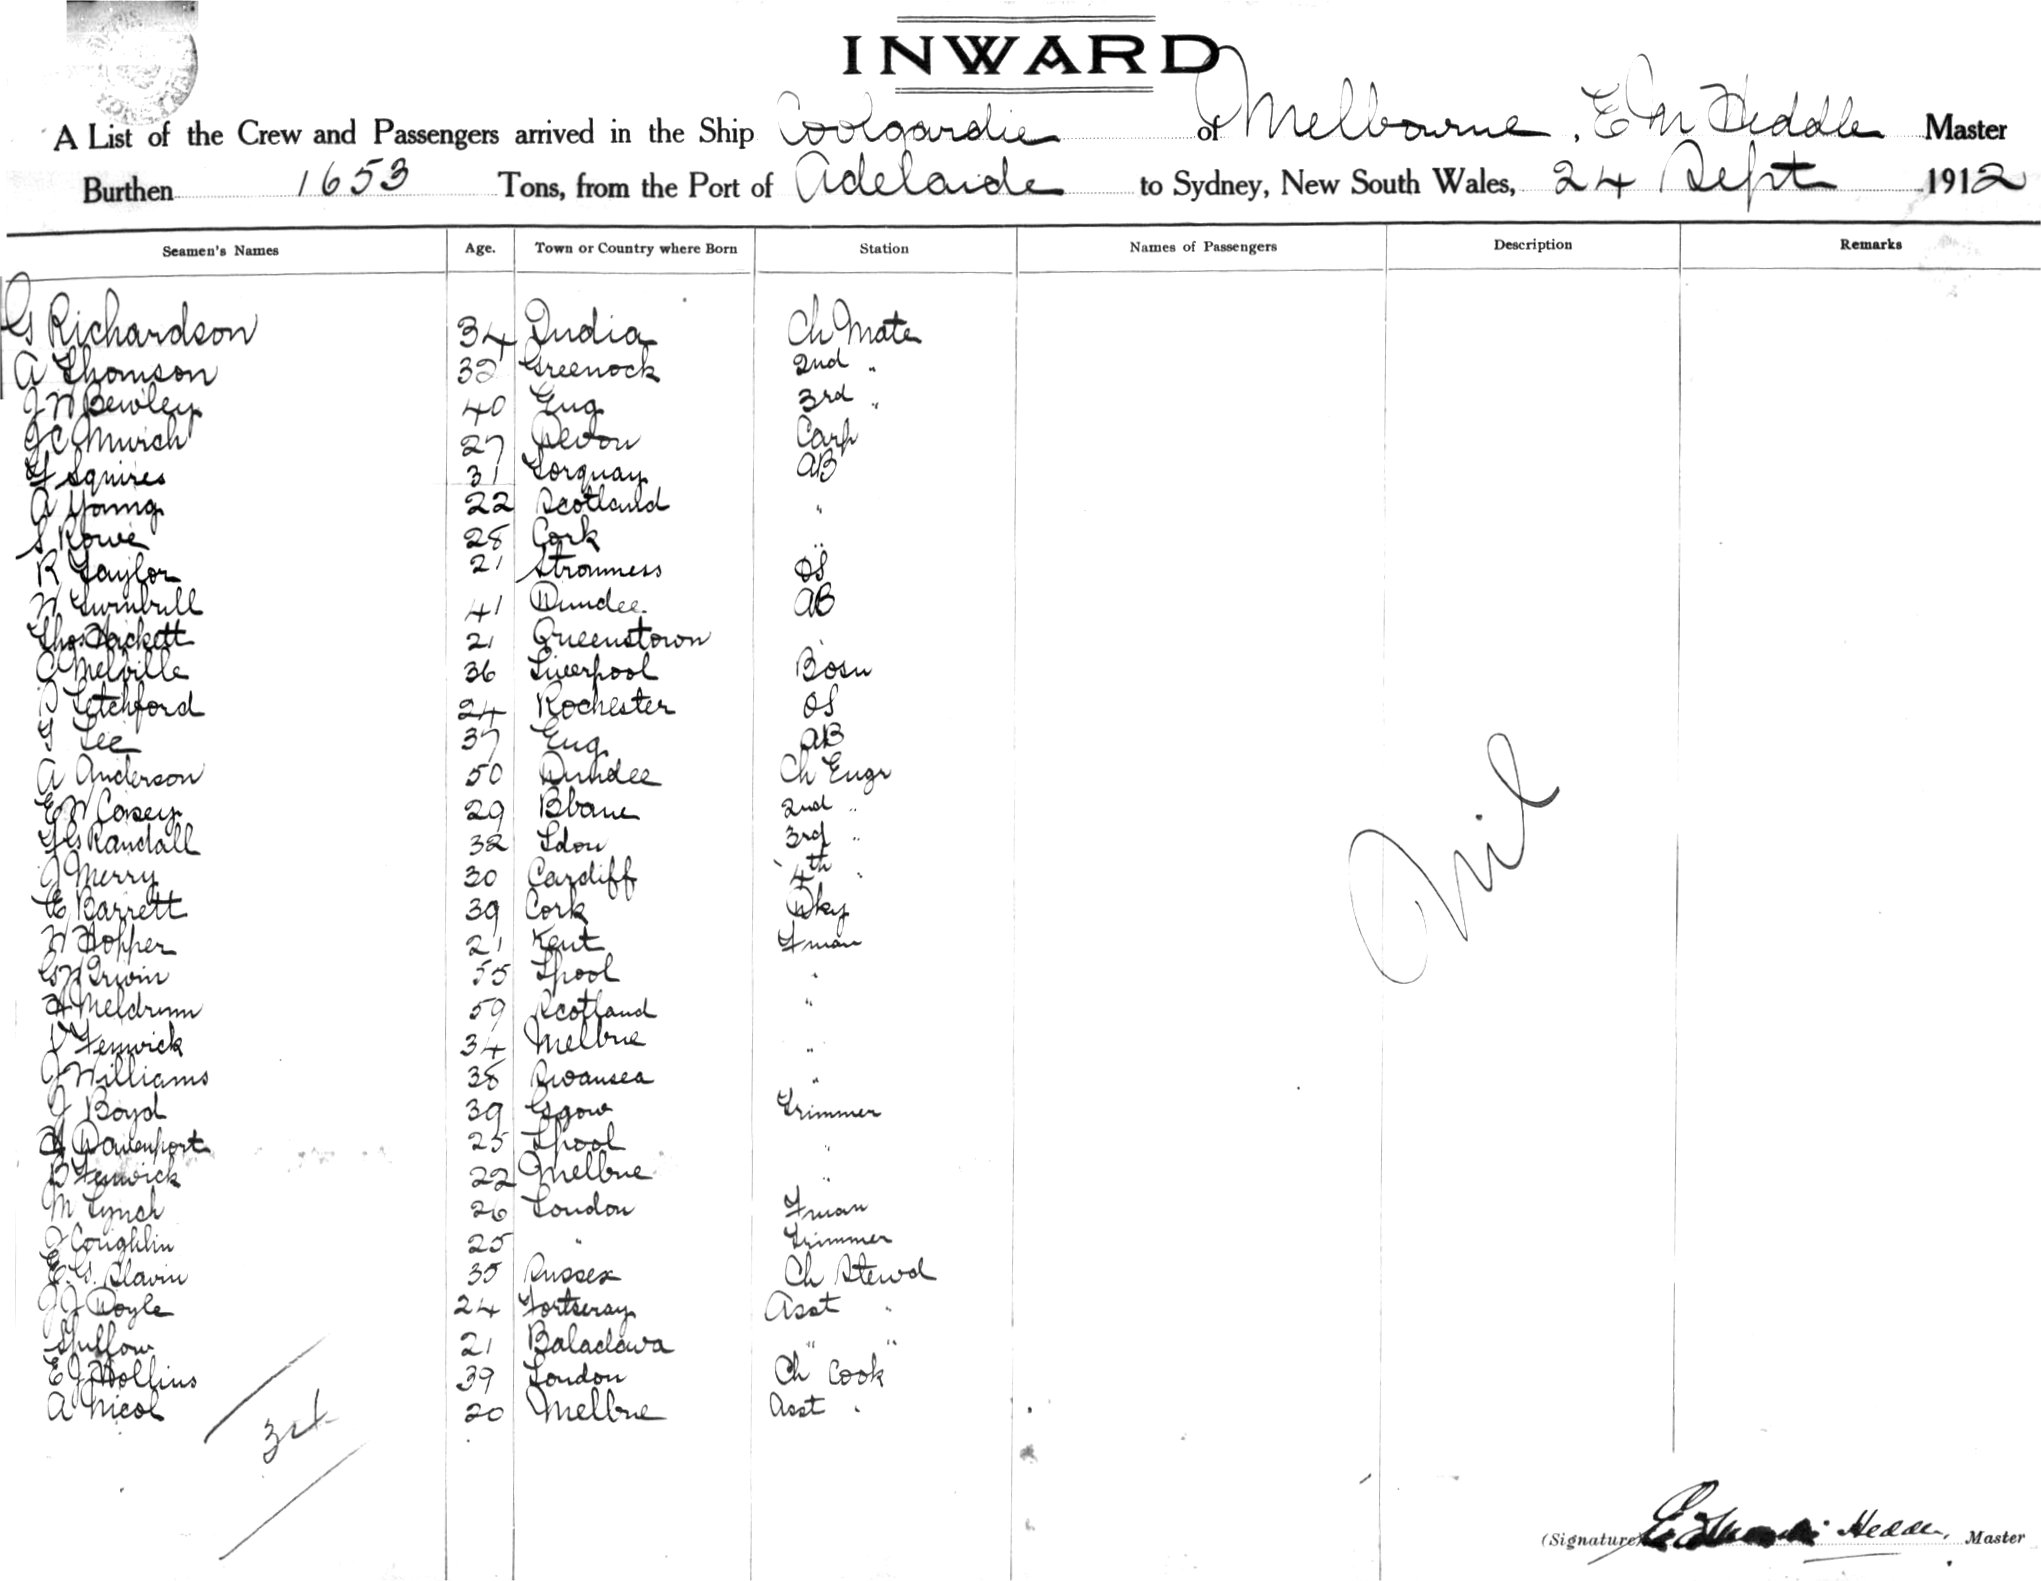 INWARD
A List of the Crew and Passengers arrived in the Ship Coolgardie of Melbourne, E M Heddle Master
Burthen 1653 Tons, from the Port of Adelaide to Sydney, New South Wales, 24 Sept 1912
Seamen's Names Age. Town or Country where Born Station Names of Passengers Description Remarks
G Richardson 34 India Ch Mate
A Thomson 32 Greenock 2nd "
J W Bewley 40 Eng 3rd "
J C Murch 27 Devon Carp
F Squires 31 Torquay AB
A Young 22 Scotland "
S Rowe 28 Cork "
R Taylor 21 Stromness OS
W Turnbull 41 Dundee AB
Thos Hackett 21 Queenstown "
C Melville 36 Liverpool Bosn
Letchford 24 Rochester OS
G Lee 37 Eng AB
A Anderson 50 Dundee Ch Engr
E W Casey 29 Bbane 2nd "
F G Randall 32 Ldon 3rd "
J Merry 30 Cardiff 4th "
E Barrett 39 Cork Dky
W Hopper 21 Kent Fman
G W Irwin 55 Lpool "
H Meldrum 59 Scotland "
J Fenwick 34 Melbne "
J Williams 38 Swansea "
J Boyd 39 Gsgow Trimmer
H Davenport 25 Lpool "
B Fenwick 22 Melbne "
M Lynch 26 London Fman
J Coughlin 25 " Trimmer
E. G. Slavin 35 Sussex Ch Stewd
J J Doyle 24 Fortscray Asst "
21 Balaclava " "
E J Hollins 39 London Ch Cook
A Nicol 20 Melbne Asst "
Nil
(Signature) Heddle, Master